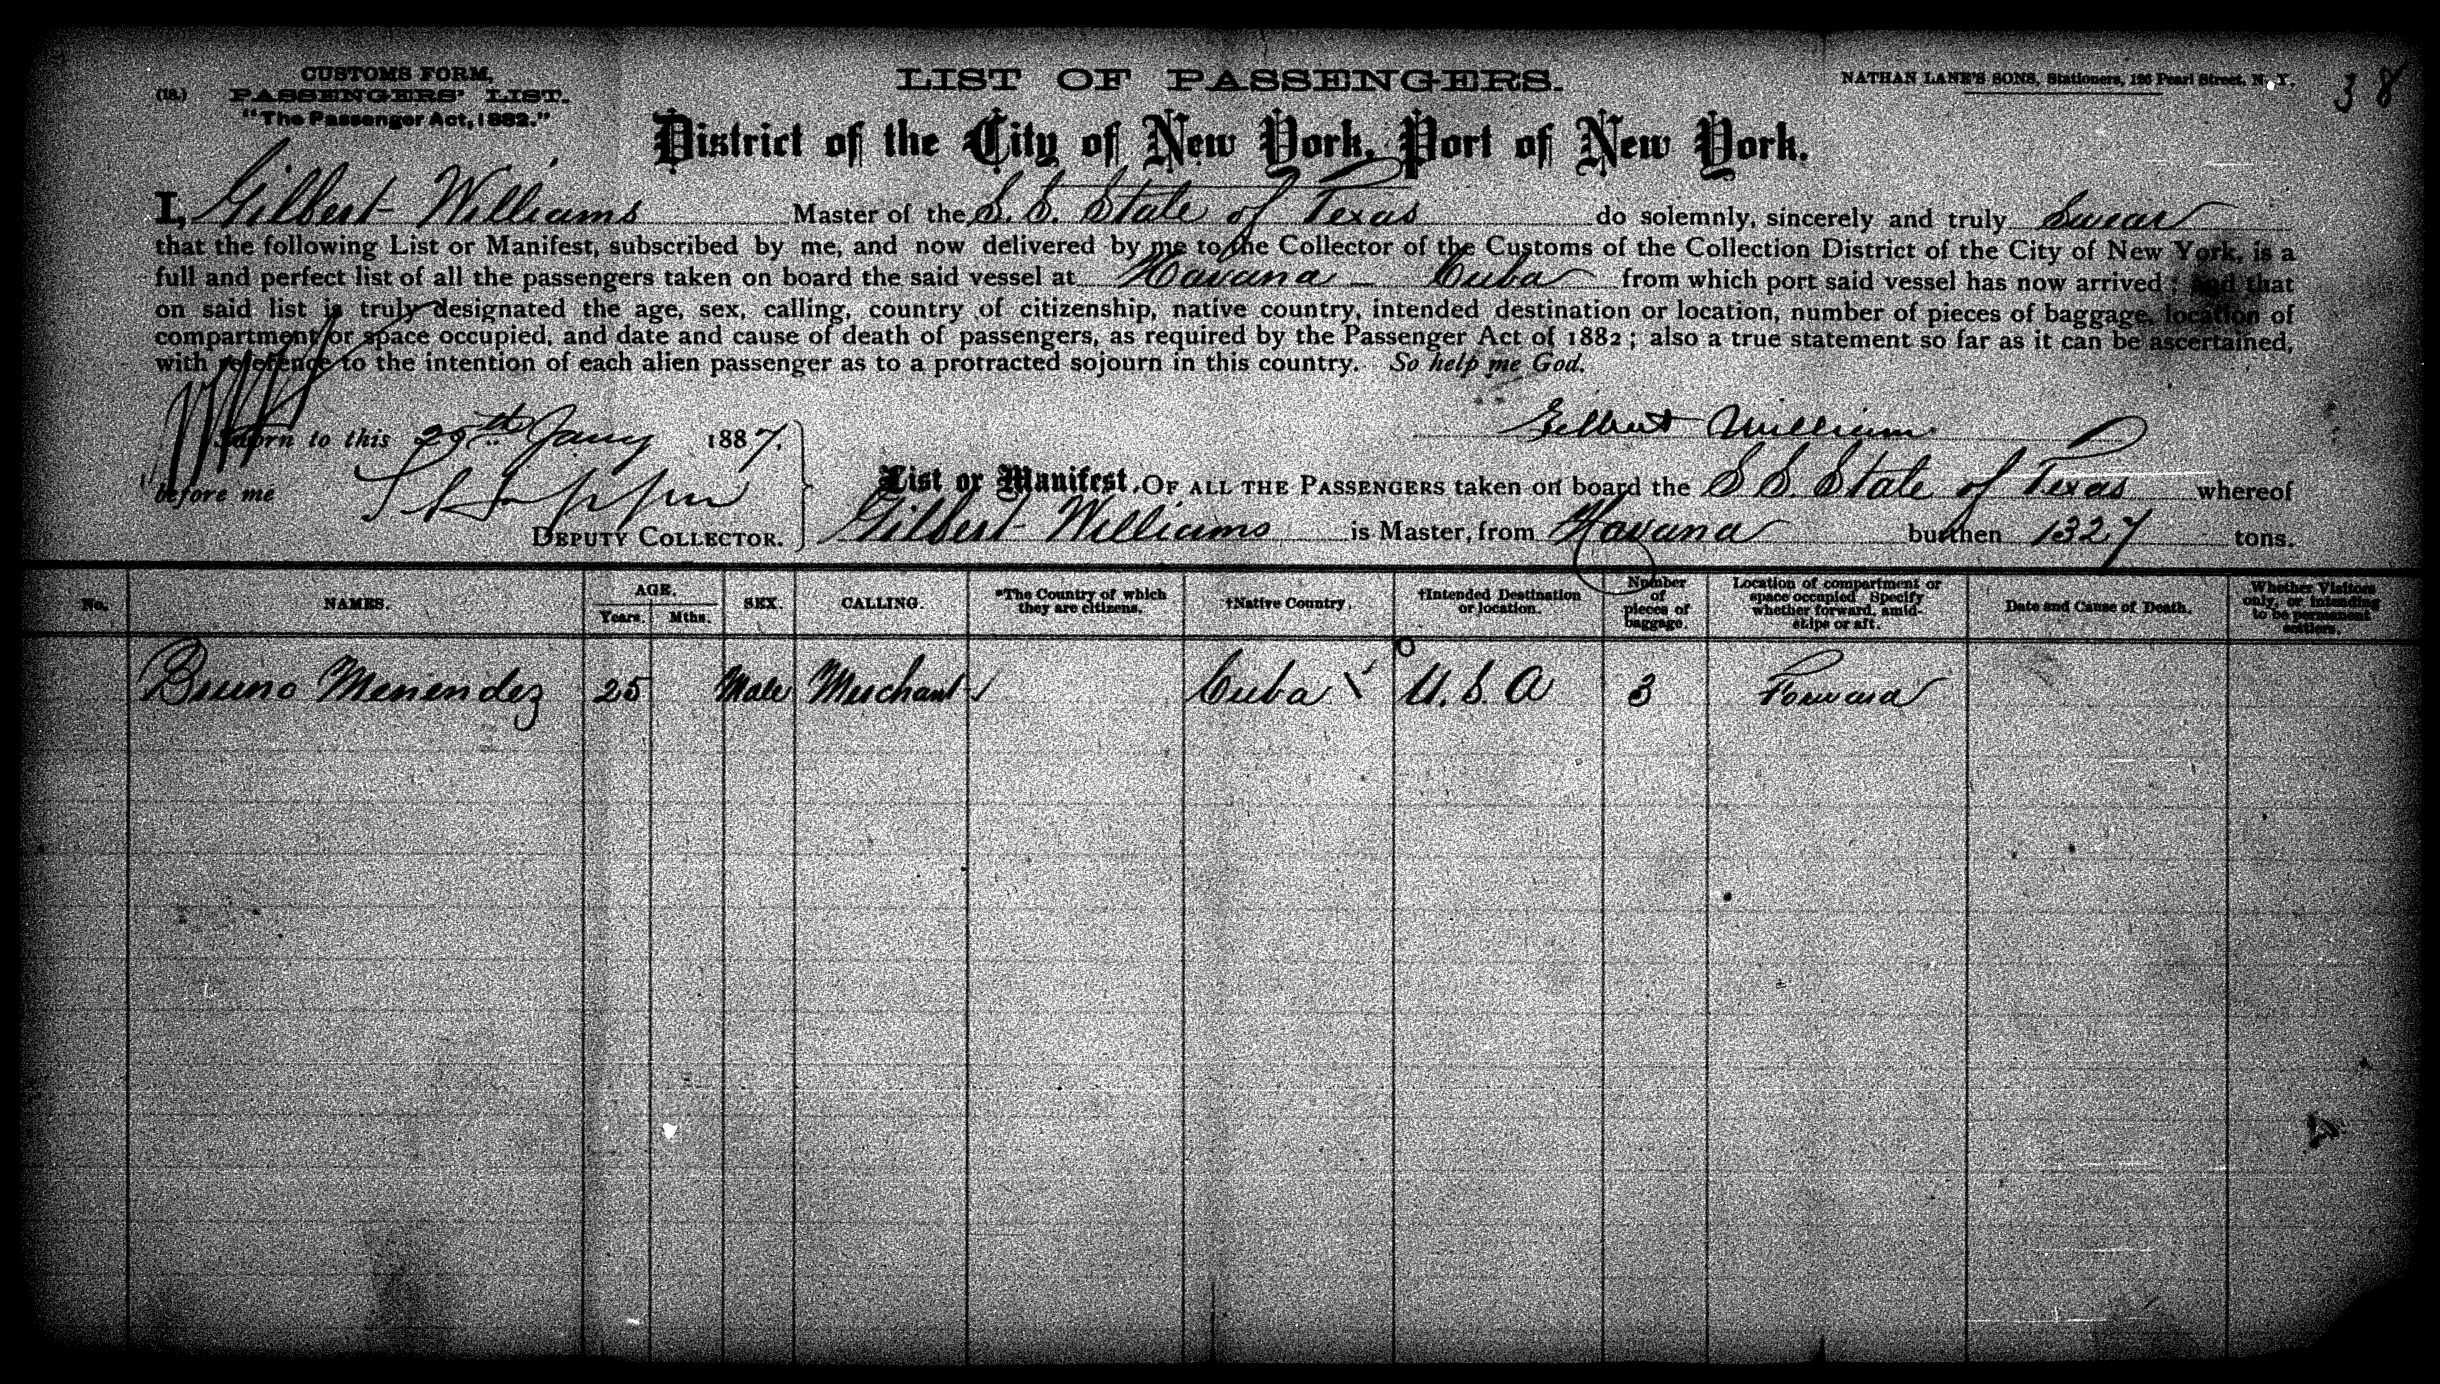 CUSTOMS FORM,
(18.) PASSENGERS' LIST.
"The Passenger Act, 1882."
LIST OF PASSENGERS.
NATHAN LANE'S SONS, Stationers, 126 Pearl Street, N. Y.
38
District of the City of New York, Port of New York.
I, Gilbert Williams Master of the S. S. State of Texas do solemnly, sincerely and truly Swear
that the following List or Manifest, subscribed by me, and now delivered by me to the Collector of the Customs of the Collection District of the City of New York, is a
full and perfect list of all the passengers taken on board the said vessel at Havana - Cuba from which port said vessel has now arrived; and that
on said list is truly designated the age, sex, calling, country of citizenship, native country, intended destination or location, number of pieces of baggage, location of
compartment or space occupied, and date and cause of death of passengers, as required by the Passenger Act of 1882; also a true statement so far as it can be ascertained,
with reference to the intention of each alien passenger as to a protracted sojourn in this country. So help me God.
Sworn to this 29th Jany 1887.
Gilbert Williams
before me
DEPUTY COLLECTOR.
List or Manifest, OF ALL THE PASSENGERS taken on board the S S. State of Texas whereof
Gilbert Williams is Master, from Havana burthen 1327 tons.
No. NAMES. AGE. Years. Mths. SEX. CALLING. *The Country of which they are citizens. †Native Country. †Intended Destination or location. Number of pieces of baggage. Location of compartment or space occupied Specify whether forward, amidships or aft. Date and Cause of Death. Whether Visitors only, or intending to be permanent settlers.
Bruno Menendez 25 Male Merchant Cuba U. S. A 3 Forward